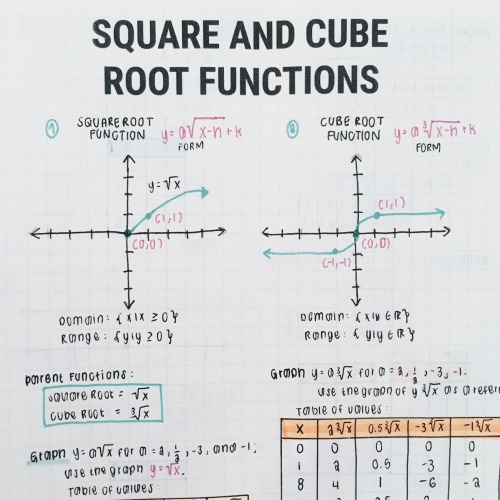 SQUARE AND CUBE
ROOT FUNCTIONS
① SQUARE ROOT
FUNCTION y = a√x-h + k
FORM
y = √x
(1,1)
(0,0)
Domain: { x|x ≥ 0 }
Range: { y|y ≥ 0 }
② CUBE ROOT
FUNCTION y = a∛x-h + k
FORM
(1,1)
(0,0)
(-1,-1)
Domain: { x|x ∈ ℝ }
Range: { y|y ∈ ℝ }
parent functions:
square root = √x
cube root = ∛x
Graph y = a√x for a = 2, 1/2, -3, and -1;
use the graph y = √x.
Table of values:
Graph y = a∛x for a = 2, 1/2, -3, -1.
use the graph of y ∛x as a refer
Table of values:
x 2∛x 0.5∛x -3∛x -1∛x
0 0 0 0 0
1 2 0.5 -3 -1
8 4 1 -6 -2